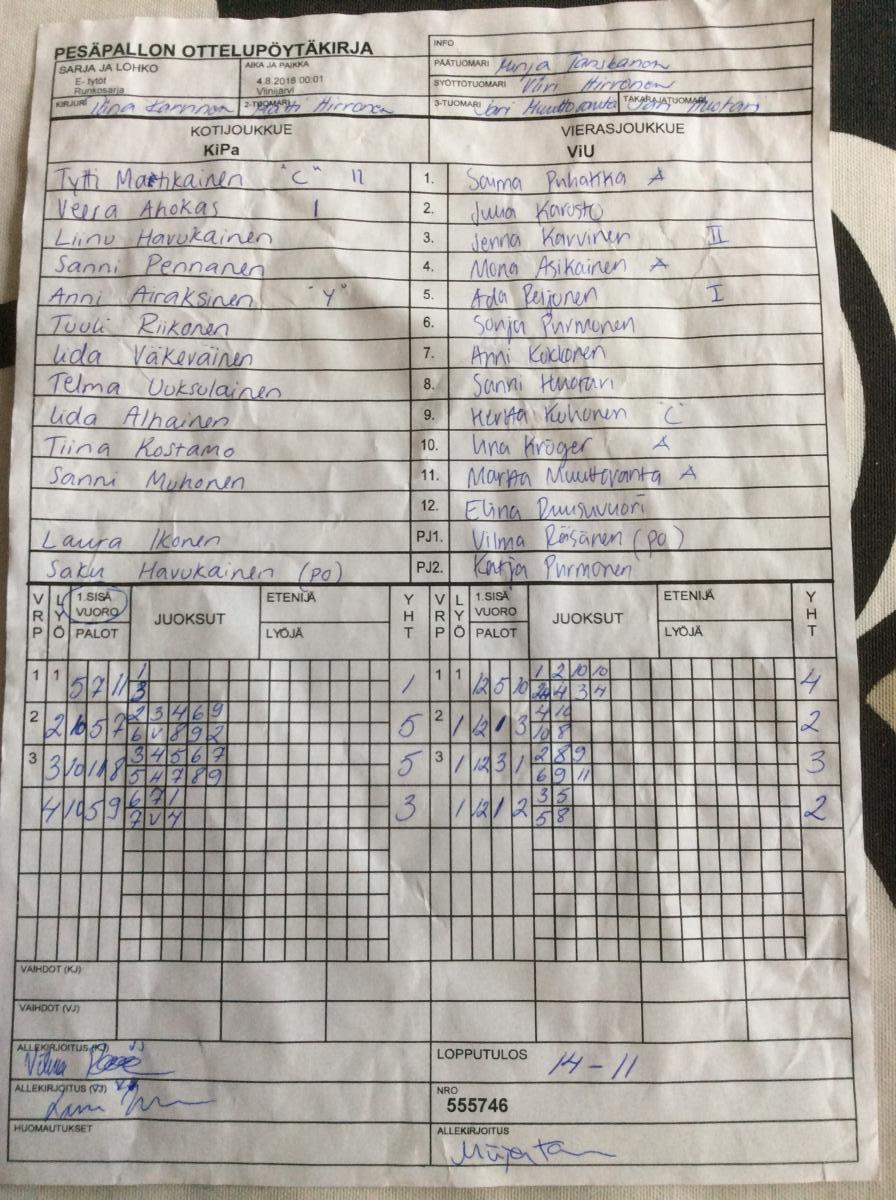 PESÄPALLON OTTELUPÖYTÄKIRJA
INFO
SARJA JA LOHKO
E- tytöt
Runkosarja
AIKA JA PAIKKA
4.8.2018 00:01
Viinijärvi
PÄÄTUOMARI Minja Tanskanen
SYÖTTÖTUOMARI Hirvonen
KIRJURI 2-TUOMARI Hirvonen
3-TUOMARI Jari Muuttovanta TAKARAJATUOMARI
KOTIJOUKKUE VIERASJOUKKUE
KiPa ViU
Tytti Martikainen "C" II 1. Saima Puhakka A
Veera Ahokas I 2. Julia Karusto
Liinu Havukainen 3. Jenna Karvinen II
Sanni Pennanen 4. Mona Asikainen A
Anni Airaksinen "Y" 5. Ada Reijonen I
Tuuli Riikonen 6. Sonja Purmonen
Iida Väkeväinen 7. Anni Kokkonen
Telma Uuksulainen 8. Sanni Huotari
Iida Alhainen 9. Hertta Kuhonen "C"
Tiina Kostamo 10. Iina Kröger A
Sanni Muhonen 11. Martta Muuttovanta A
12. Elina Ruusuvuori
Laura Ikonen PJ1. Vilma Räisänen (po)
Saku Havukainen (po) PJ2. Katja Purmonen
VRP LYÖ 1.SISÄ VUORO PALOT JUOKSUT ETENIJÄ LYÖJÄ YHT VRP LYÖ 1.SISÄ VUORO PALOT JUOKSUT ETENIJÄ LYÖJÄ YHT
1 1 5 7 11 1 1 1 1 12 5 10 1 2 10 10 4
3 4 3 4
2 2 10 5 7 2 3 4 6 9 5 2 1 12 1 3 4 10 2
6 V 8 9 2 10 8
3 3 10 11 8 3 4 5 6 7 5 3 1 12 3 1 2 8 9 3
5 4 7 8 9 6 9 11
4 10 5 9 6 7 1 3 1 12 1 2 3 5 2
7 V 4 5 8
VAIHDOT (KJ)
VAIHDOT (VJ)
ALLEKIRJOITUS (KJ) VJ
Vilma
LOPPUTULOS 14-11
ALLEKIRJOITUS (VJ)
NRO
555746
HUOMAUTUKSET
ALLEKIRJOITUS